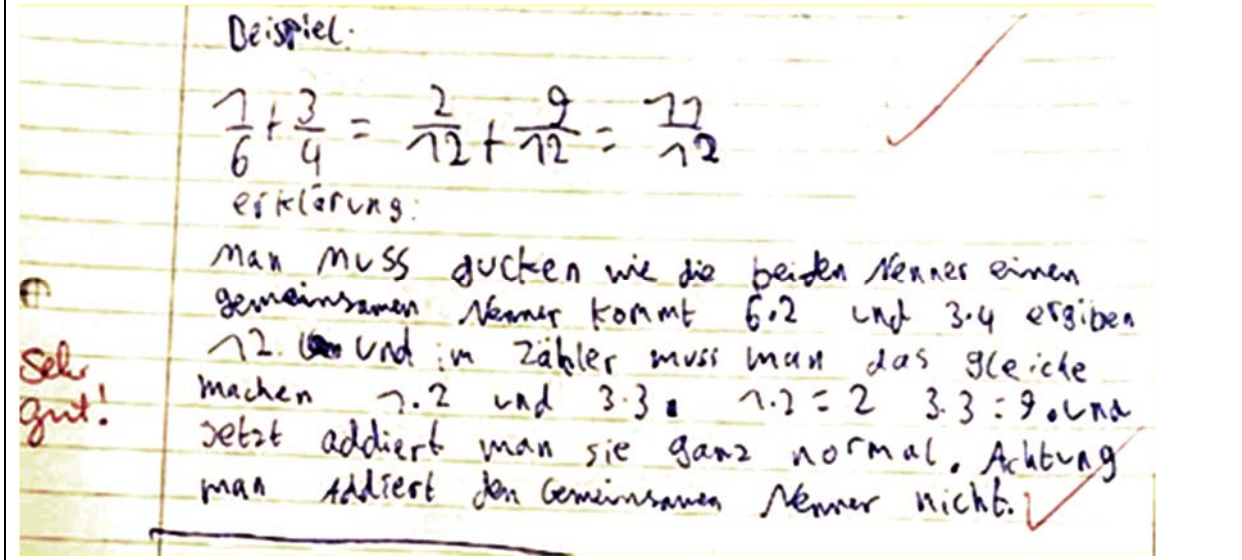 Beispiel:
1/6 + 3/4 = 2/12 + 9/12 = 11/12
erklärung:
Man muss gucken wie die beiden Nenner einen
gemeinsamen Nenner kommt 6·2 und 3·4 ergiben
12. Und im Zähler muss man das gleiche
machen 1·2 und 3·3. 1·2=2 3·3=9. und
Jetzt addiert man sie ganz normal. Achtung
man Addiert den Gemeinsamen Nenner nicht.
Sehr
gut!